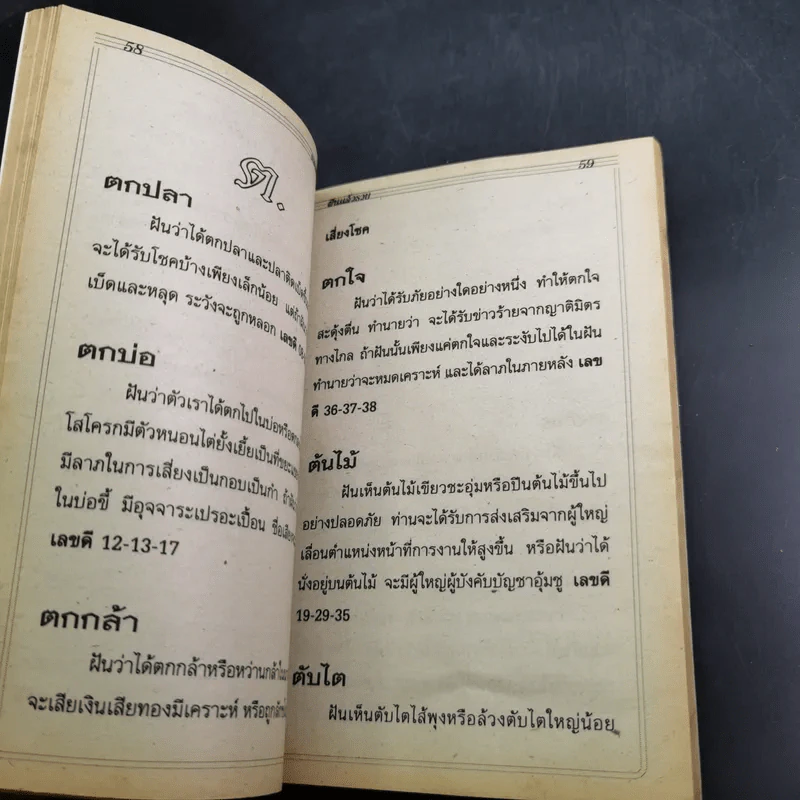 58
ต.
ตกปลา
ฝันว่าได้ตกปลาและปลาติดเบ็ด
จะได้รับโชคบ้างเพียงเล็กน้อย
เบ็ดและหลุด ระวังจะถูกหลอก เลขดี
ตกบ่อ
ฝันว่าตัวเราได้ตกไปในบ่อหรือ
โสโครกมีตัวหนอนไต่ยั้วเยี้ยเป็นที่ขยะ
มีลาภในการเสี่ยงเป็นกอบเป็นกำ
ในบ่อขี้ มีอุจจาระเปรอะเปื้อน
เลขดี 12-13-17
ตกกล้า
ฝันว่าได้ตกกล้าหรือหว่านกล้า
จะเสียเงินเสียทองมีเคราะห์
59
ฝันแล้วรวย
เสี่ยงโชค
ตกใจ
ฝันว่าได้รับภัยอย่างใดอย่างหนึ่ง ทำให้ตกใจ
สะดุ้งตื่น ทำนายว่า จะได้รับข่าวร้ายจากญาติมิตร
ทางไกล ถ้าฝันนั้นเพียงแค่ตกใจและระงับไปได้ในฝัน
ทำนายว่าจะหมดเคราะห์ และได้ลาภในภายหลัง เลข
ดี 36-37-38
ต้นไม้
ฝันเห็นต้นไม้เขียวชะอุ่มหรือปีนต้นไม้ขึ้นไป
อย่างปลอดภัย ท่านจะได้รับการส่งเสริมจากผู้ใหญ่
เลื่อนตำแหน่งหน้าที่การงานให้สูงขึ้น หรือฝันว่าได้
นั่งอยู่บนต้นไม้ จะมีผู้ใหญ่ผู้บังคับบัญชาอุ้มชู เลขดี
19-29-35
ตับไต
ฝันเห็นตับไตไส้พุงหรือล้วงตับไตใหญ่น้อย